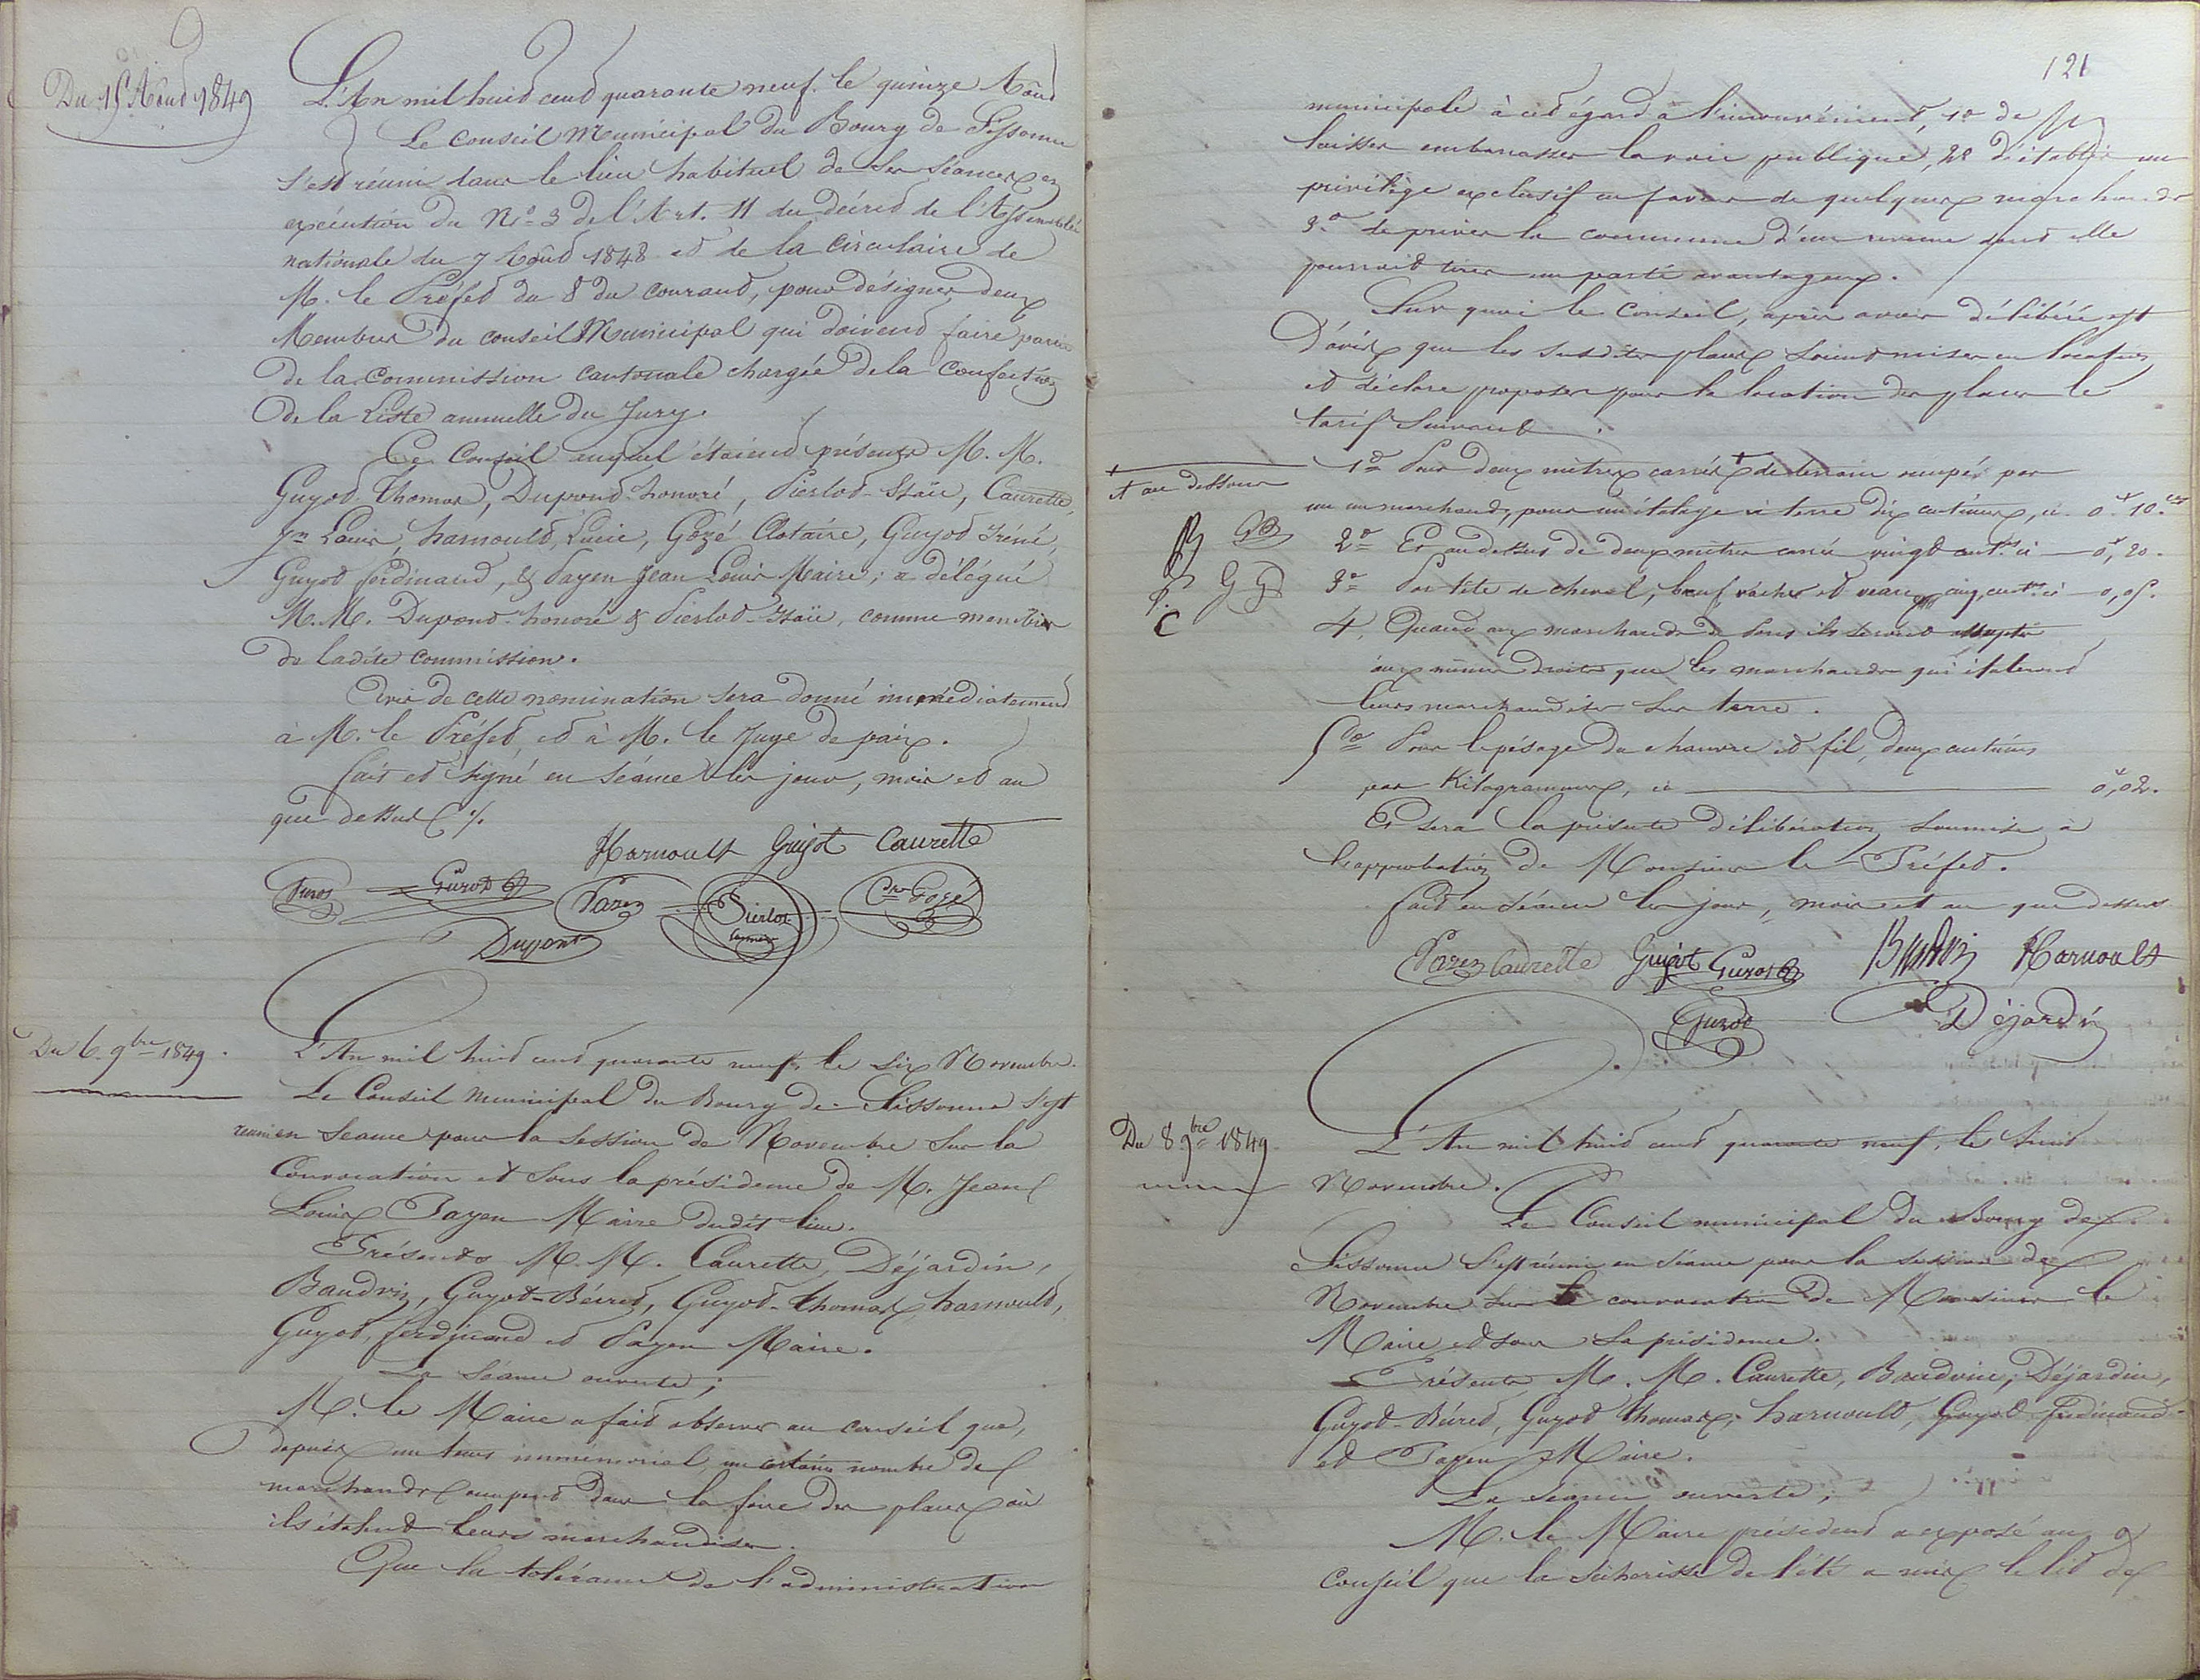 Du 15 Août 1849
L'An mil huit cent quarante neuf. le quinze Août
Le Conseil Municipal du Bourg de Sissonne
s'est réuni dans le lieu habituel de ses séances en
exécution du No 3 de l'Art. 11 du décret de l'Assemblée
nationale du 7 Août 1848 et de la Circulaire de
M. le Préfet du 8 du courant, pour désigner deux
Membres du conseil Municipal qui doivent faire partie
de la Commission cantonale chargée de la Confection
de la Liste annuelle du Jury.
Ce Conseil auquel étaient présents M. M.
Guyot-Thomas, Dupont-honoré, Pierlot-Isaïe, Caurette
Jn Louis, harnould, Lucie, Gozé Clotaire, Guyot Iréné,
Guyot ferdinand, & Payen Jean Louis Maire; a délégué
M. M. Dupont-honoré & Pierlot-Isaïe, comme membres
de ladite commission.
Avis de cette nomination sera donné immédiatement
à M. le Préfet, et à M. le Juge de paix.
fait et signé en séance les jour, mois et an
que dessus %.
Harnoult Guyot Caurette
Guyot Payen Pierlot Gozé
Dupont
Du 6. 9bre 1849.
L'An mil huit cent quarante neuf, le Six Novembre.
Le Conseil Municipal du Bourg de Sissonne s'est
reuni en Seance pour la Session de Novembre Sur la
Convocation et sous la présidence de M. Jean
Louis Payen Maire dudit lieu.
Présents M. M. Caurette, Déjardin,
Baudvin, Guyot-Béret, Guyot-Thomas, harnould,
Guyot, ferdinand et Payen Maire.
La Séance ouverte;
M. le Maire a fait observer au conseil que,
depuis un tems immémorial, un certain nombre de
marchands occupent dans la foire des places où
ils étalent leurs marchandises.
Que la tolérance de l'administration
121
municipale à cet égard a l'inconvénient, 1o de
laisser embarrasser la voie publique, 2o d'établir un
privilège exclusif en faveur de quelques marchands
3o de priver la commune d'un revenu dont elle
pourrait tirer un parti avantageux.
Sur quoi le Conseil, après avoir délibéré est
D'avis que les susdites places soient mises en location
et déclare proposer pour la location des places le
tarif Suivant.
1o Pour deux mètres carrés + de terrain occupés par
+ et au dessous
un marchand, pour un étalage à terre dix centimes, ci 0f 10ces
2o Et au dessus de deux mètres carrés vingt centes ci 0f, 20.
3o Par tête de cheval, bœuf, vaches et veaux cinq cents ci 0, 05.
C
4. Quand aux marchands de
aux mêmes droits que les marchands qui étaleront
leurs marchandises sur terre.
5o Pour le pésage du chanvre et fil, deux centimes
par Kilogrammes, ci 0f, 02.
Et sera la présente délibération soumise à
l'approbation de Monsieur le Préfet.
fait en séance les jour, mois et an que dessus
Payen Caurette Guyot Guyot Baudvin Harnoult
Guyot Déjardin
Du 8 9bre 1849.
L'An mil huit cent quarante neuf, le huit
Novembre.
Le Conseil municipal du Bourg de
Sissonne s'est réuni en séance pour la session de
Novembre sur la convocation de Monsieur le
Maire et sous sa présidence.
Présents M. M. Caurette, Baudvin, Déjardin,
Guyot-Béret, Guyot Thomas, harnoult, Guyot ferdinand
et Payen Maire.
La Séance ouverte;
M. le Maire président a exposé au
Conseil que la sécheresse de l'été a mis le lit de